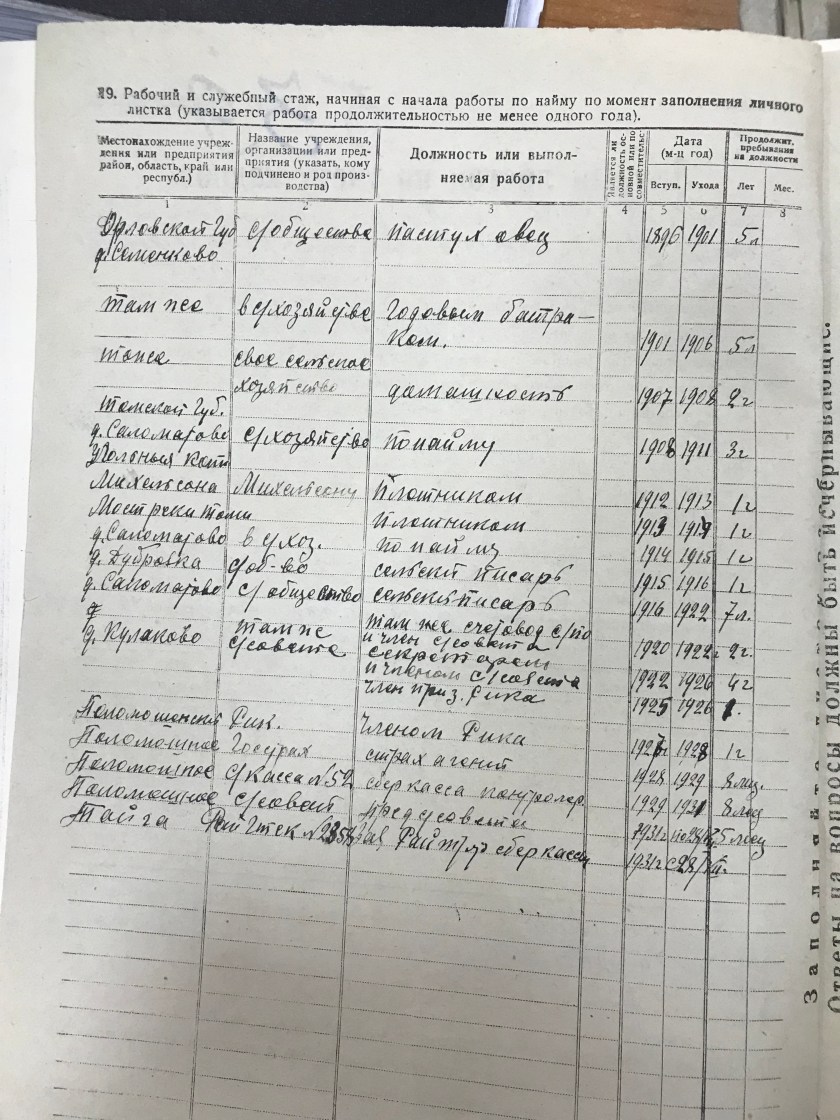 29. Рабочий и служебный стаж, начиная с начала работы по найму по момент заполнения личного
листка (указывается работа продолжительностью не менее одного года).
Местонахождение учреждения или предприятия район, область, край или республ.)
Название учреждения, организации или предприятия (указать, кому подчинено и род производства)
Должность или выполняемая работа
Является ли должность основной или по совместительс.
Дата (м-ц год)
Вступ. Ухода
Продолжит. пребывания на должности
Лет Мес.
1 2 3 4 5 6 7 8
Орловской Губ с/общества пастух овец 1896 1901 5 л
д. Семенково
там же в с/хозяйстве годовым батра-
ком. 1901 1906 5 л
тоже свое сельское
хозяйство домашность 1907 1908 2 г
Томской Губ.
д. Саломатово с/хозяйство по найму 1908 1911 3 г
Угольныя Копи
Михельсона Михельсону плотником 1912 1913 1 г
Мост реки Томи плотником 1913 1914 1 г
д. Саломатово в с/хоз. по найму 1914 1915 1 г
д. Дубровка с/об-во сельский писарь 1915 1916 1 г
д. Саломатово с/общество сельский писарь 1916 1922 7 л.
там же там же счетовод с/по
и член с/совета 1920 1922 2 г.
д. Кулаково с/совета секретарем
и членом с/совета 1922 1926 4 г
член през. Рика 1925 1926 1.
Поломошенский Рик. Членом Рика 1927 1928 1 г
Поломошное Госстрах страх агент 1928 1929 8 мес.
Поломошное с/касса № 52 сберкасса контролер 1929 1931 8 мес
Поломошное с/совет пред с/совета 1931 г 5 мес
Тайга Зав Рай сберкассы 1931 г с 28/VII г.
Заполняйте
Ответы на вопросы должны быть исчерпывающие.